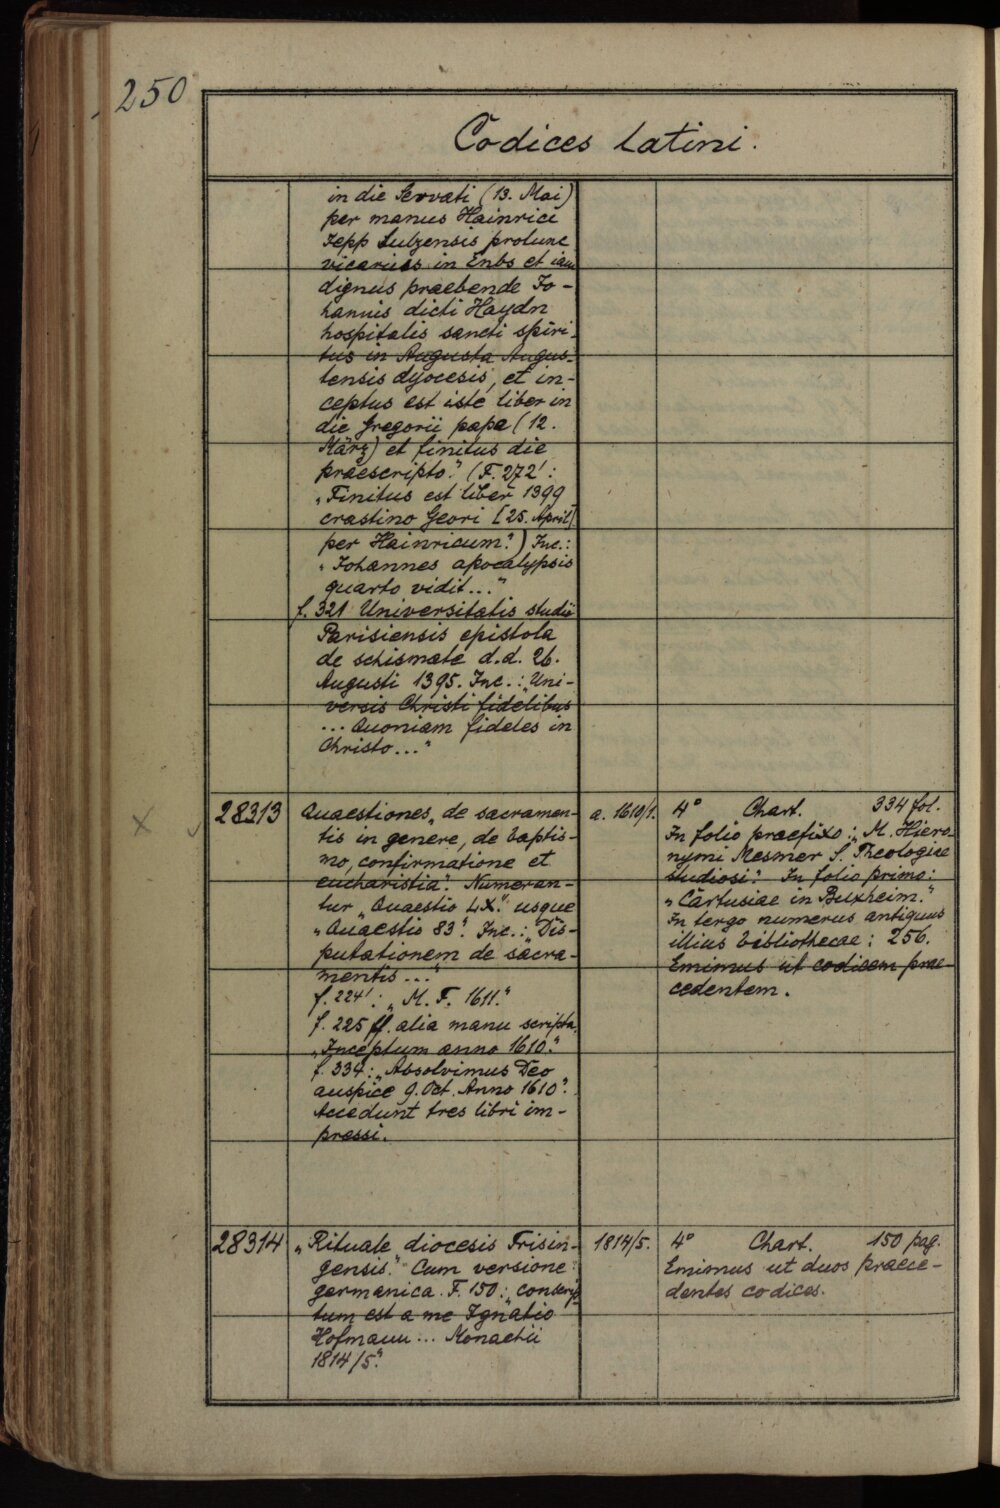 250
Codices latini.
in die Servati (13. Mai)
per manus Hainrici
Jepp Sulzensis protunc
vicarius in Enbs et iam
dignus praebende Jo-
hannis dicti Haydn
hospitalis sancti spiri-
tus in Augusta Augus-
tensis dyocesis, et in-
ceptus est iste liber in
die Gregorii papa (12.
März) et finitus die
praescripto." (F. 272':
„Finitus est liber 1399
crastino Geori [25. April]
per Hainricum.") Inc.:
„Johannes apocalypsis
quarto vidit..."
f. 321 Universitatis studii
Parisiensis epistola
de schismate d.d. 26.
Augusti 1395. Inc.: „Uni-
versis Christi fidelibus
... Quoniam fideles in
Christo..."
28313
Quaestiones „de sacramen-
tis in genere, de baptis-
mo, confirmatione et
eucharistia". Numeran-
tur „Quaestio LX." usque
„Quaestio 83". Inc.: „Dis-
putationem de sacra-
mentis..."
f. 224': „M. F. 1611."
f. 225 ff. alia manu scripta,
„Inceptum anno 1610."
f. 334: „Absolvimus Deo
auspice 9. Oct. Anno 1610".
Accedunt tres libri im-
pressi.
a. 1610/1.
4° Chart. 334 fol.
In folio praefixo: „M. Hiero-
nymi Mesmer S. Theologiae
studiosi." In folio primo:
„Cartusiae in Buxheim."
In tergo numerus antiquus
illius bibliothecae: 256.
Emimus ut codicem prae-
cedentem.
28314
„Rituale diocesis Frisin-
gensis." Cum versione
germanica. F. 150: „conscrip-
tum est a me Ignatio
Hofmann ... Monachii
1814/5."
1814/5.
4° Chart. 150 pag.
Emimus ut duos praece-
dentes codices.